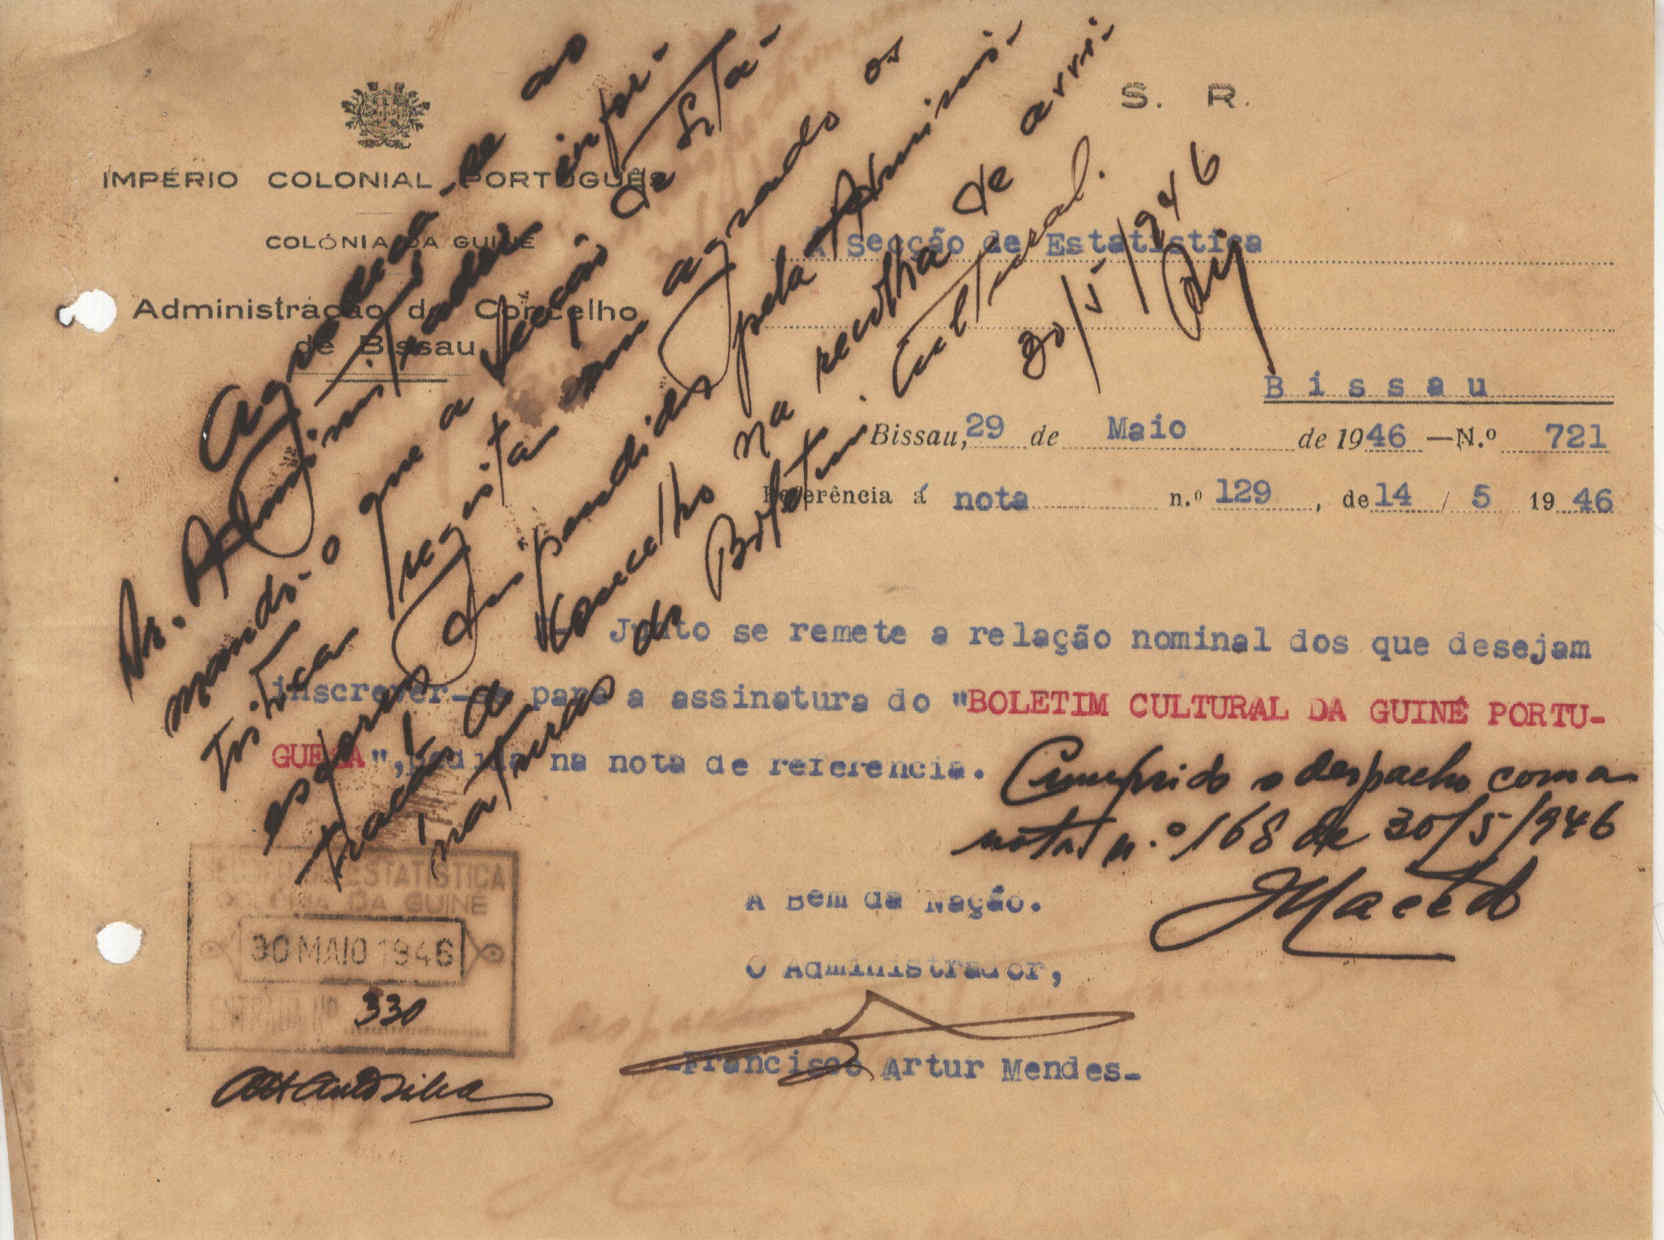 S. R.
IMPÉRIO COLONIAL PORTUGUÊS
COLÓNIA DA GUINÉ
Administração do Concelho
de Bissau
À Secção de Estatística
Bissau
Bissau, 29 de Maio de 1946 —N.º 721
Referência á nota n.º 129, de 14 / 5 1946
Agradeça-se ao
Sr. Administrador infor-
mando-o que a Secção de Esta-
tística registou com agrado os
esforços dispendidos pela Adminis-
tração do Concelho na recolha de assi-
naturas do Boletim Cultural.
30/5/946
Junto se remete a relação nominal dos que desejam
inscrever-se para a assinatura do "BOLETIM CULTURAL DA GUINÉ PORTU-
GUESA", pedida na nota de referencia.
Cumprido o despacho com a
nota n.º 168 de 30/5/946
JMacedo
A Bem da Nação.
O Administrador,
-Francisco Artur Mendes-
SECÇÃO DE ESTATISTICA
COLÓNIA DA GUINÉ
30 MAIO 1946
ENTRADA Nº 330